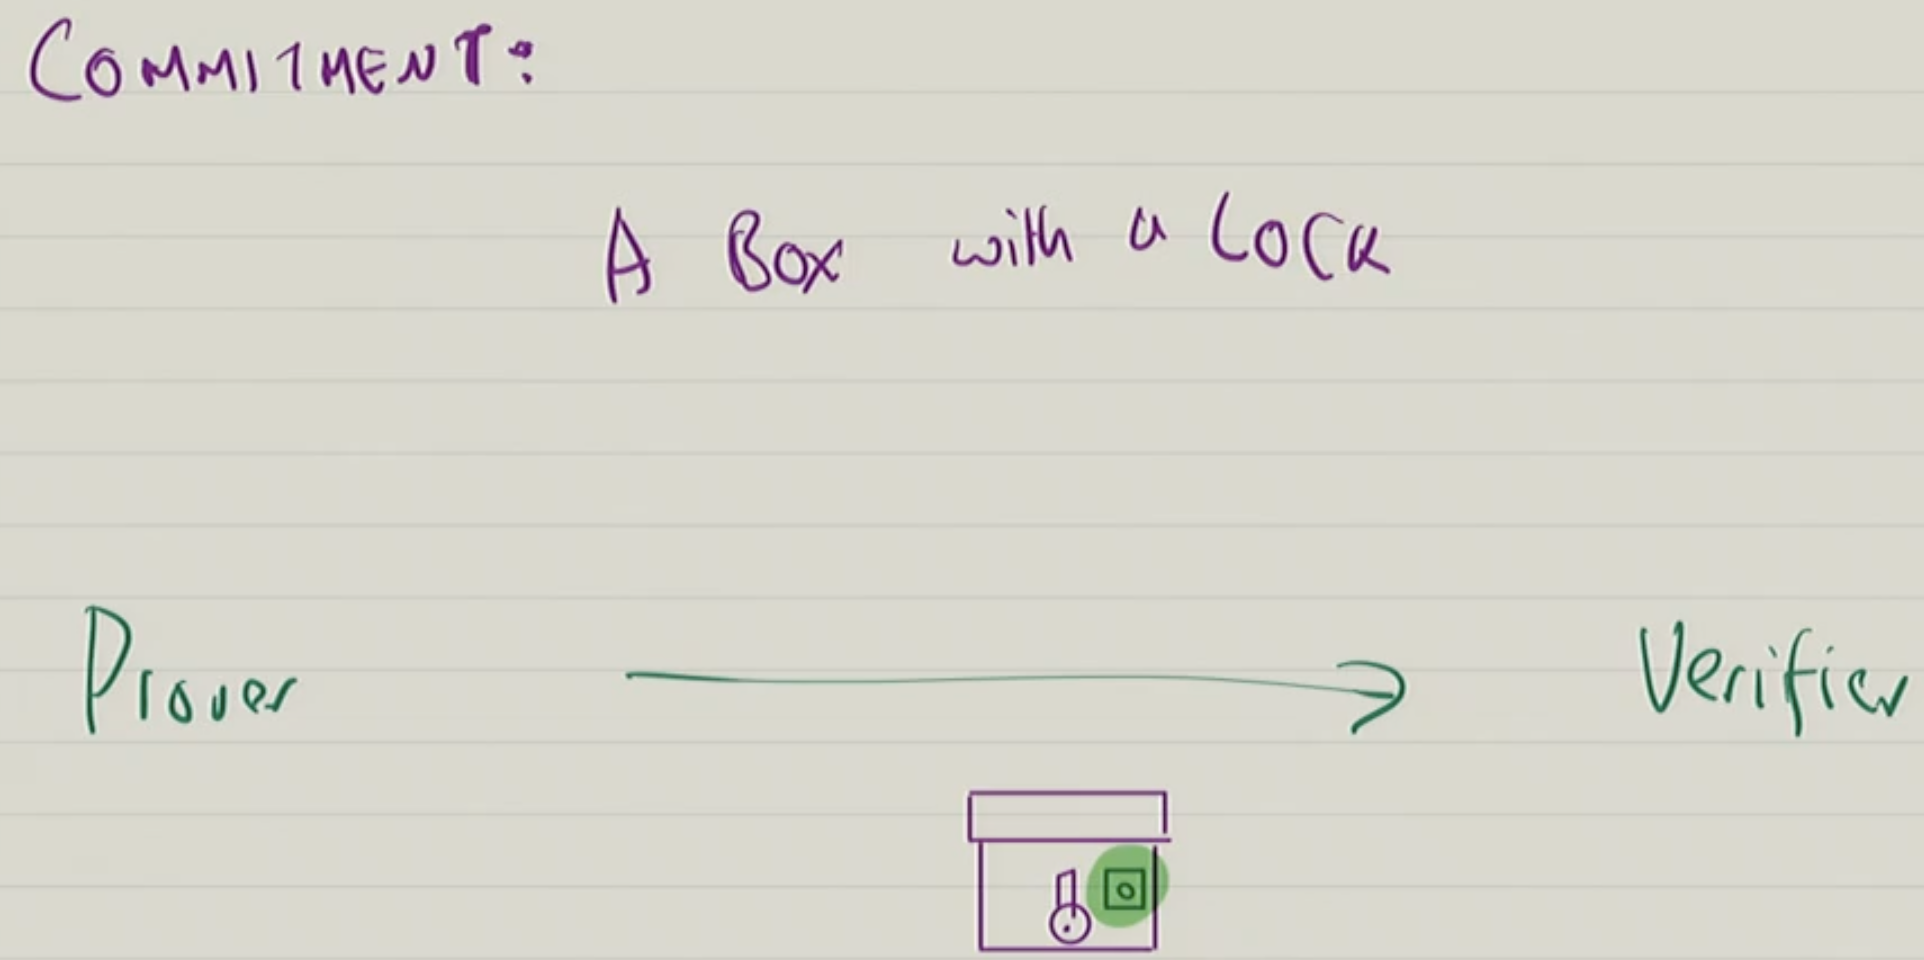 COMMITMENT:
A Box with a Lock
Prover Verifier